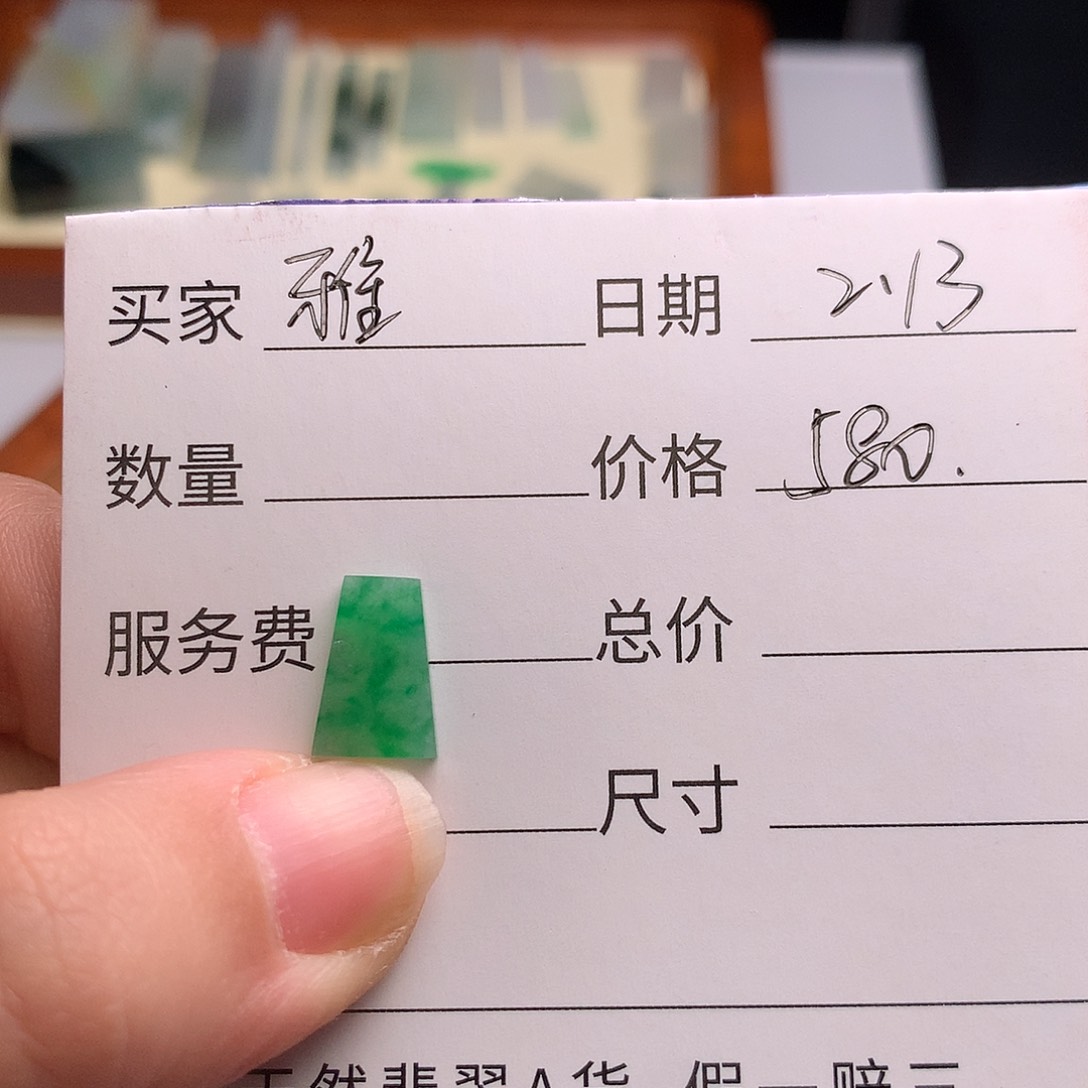 买家 雅 日期 2.13
数量 价格 580.
服务费 总价
尺寸
天然翡翠A货 假一赔三